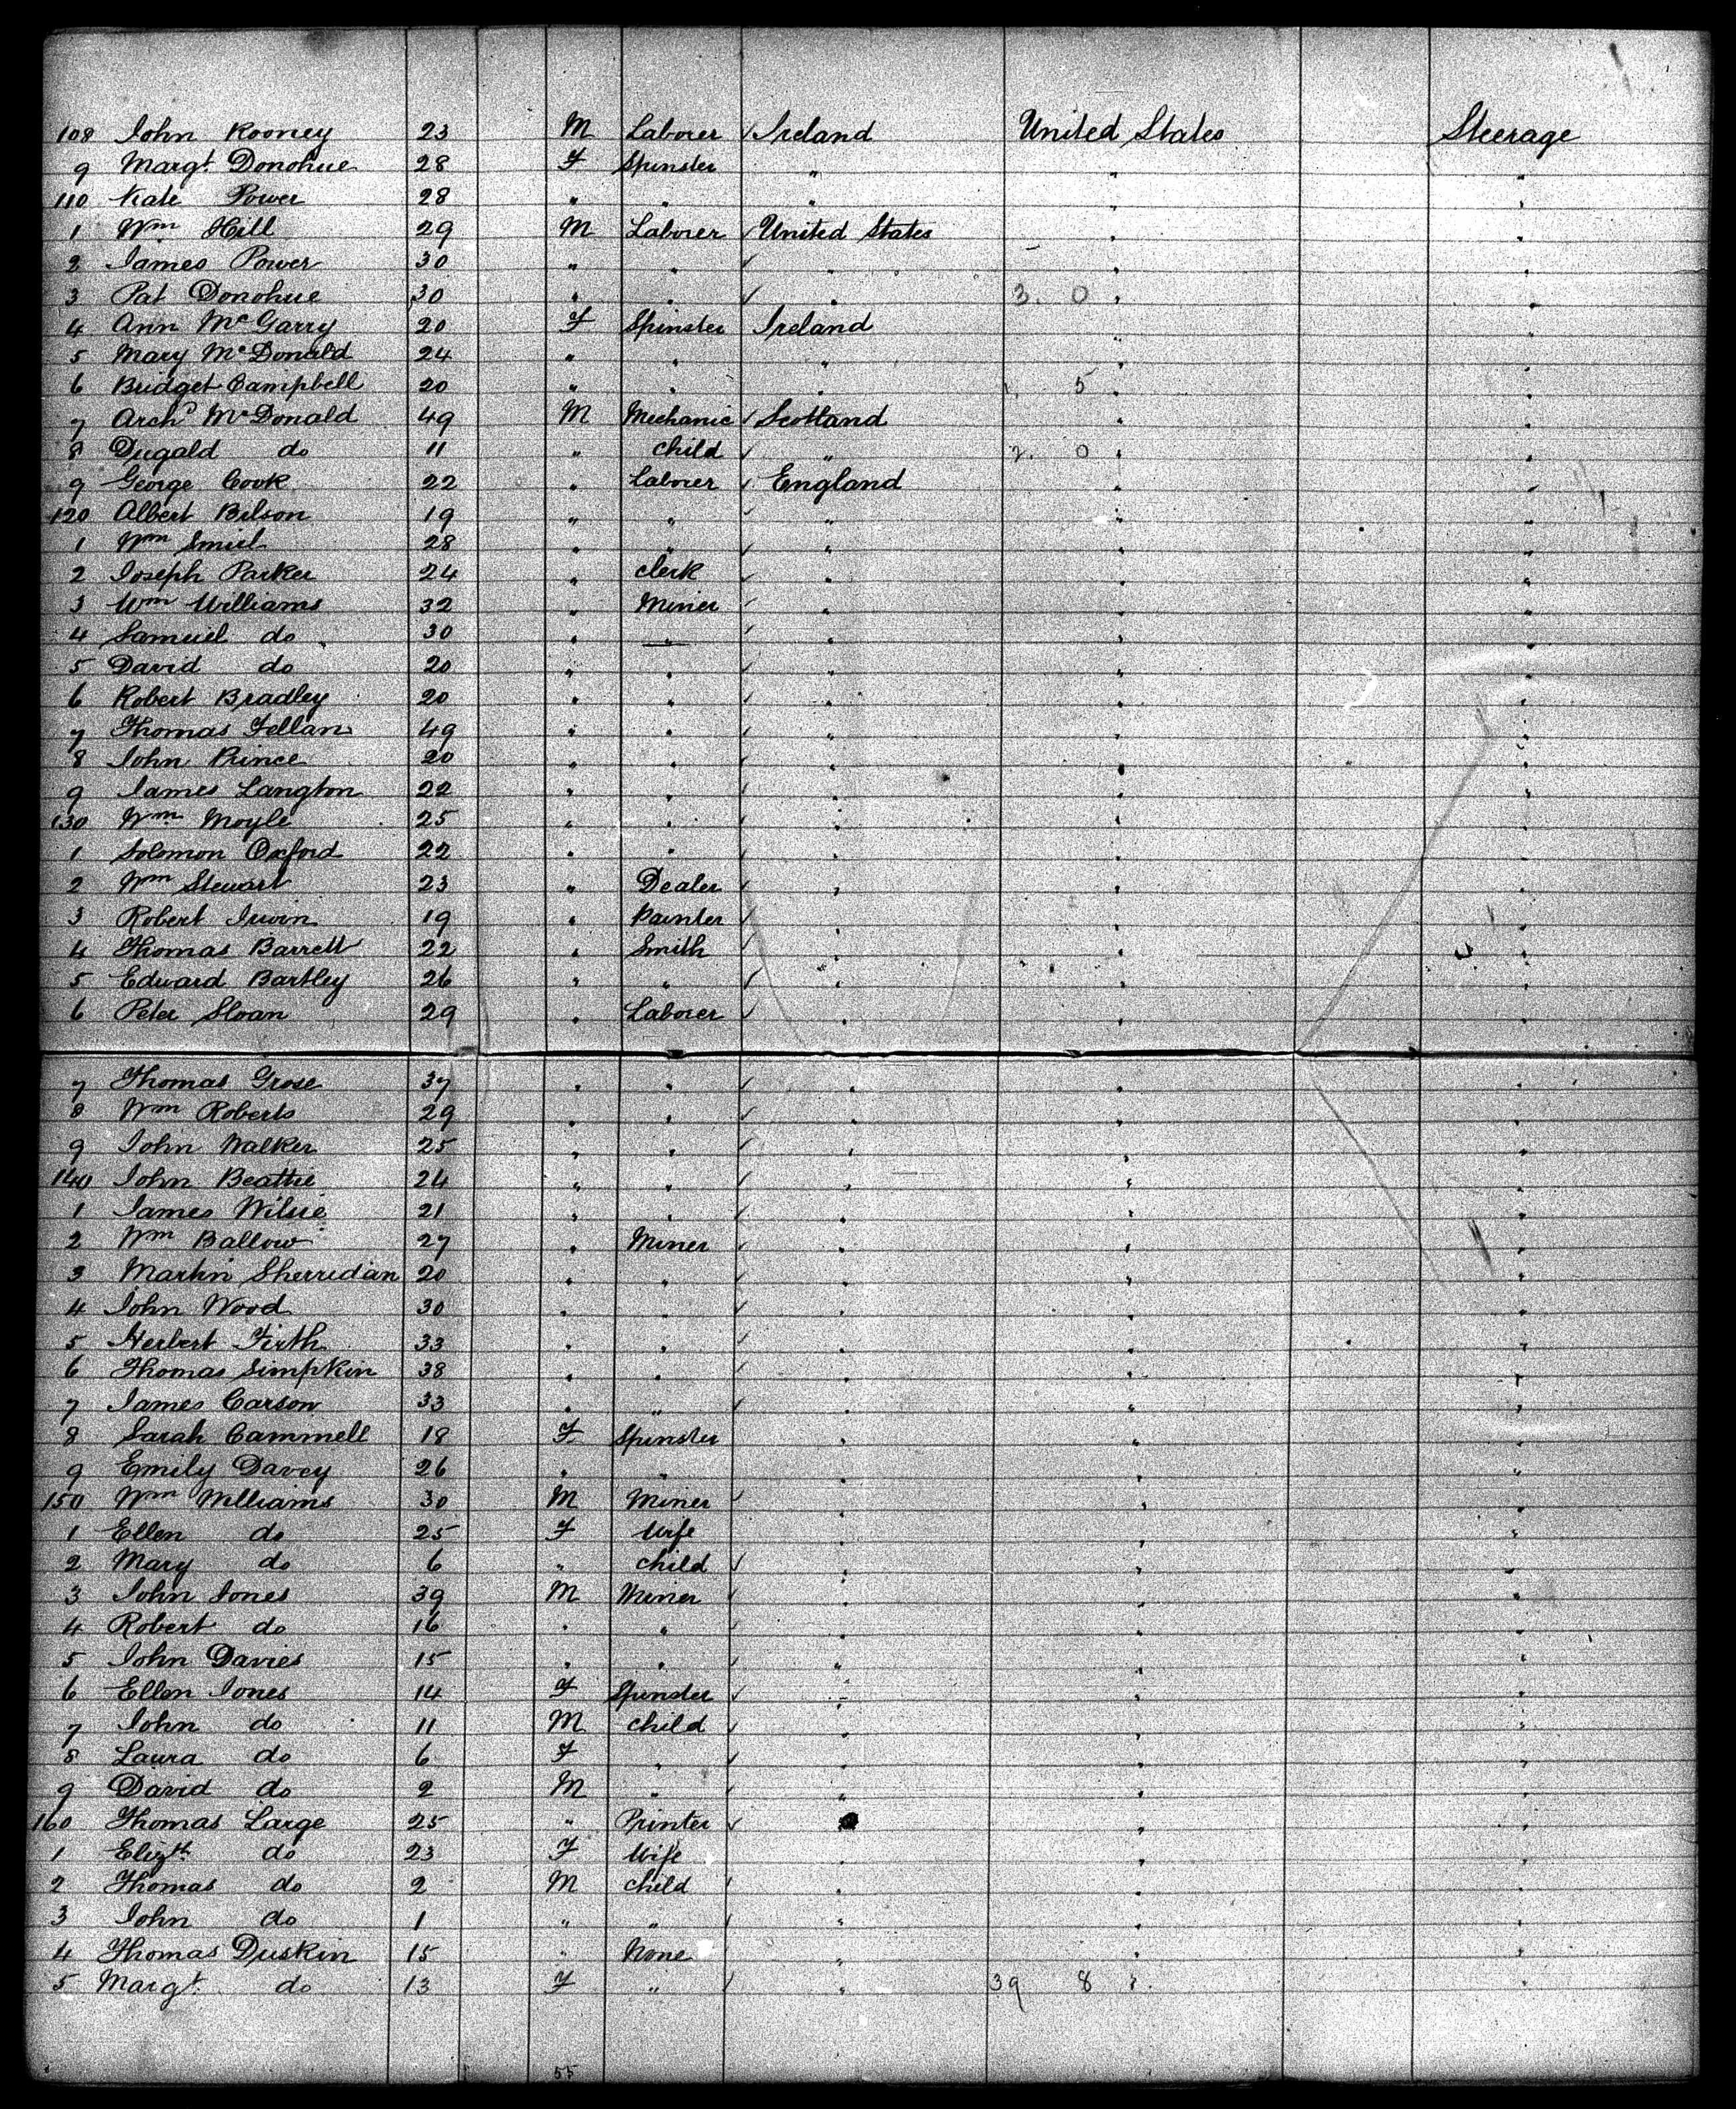 108 John Rooney 23 M Laborer ✓ Ireland United States Steerage
9 Margt. Donohue 28 F Spinster " " "
110 Kate Power 28 " " " " "
1 Wm Hill 29 M Laborer ✓ United States " "
2 James Power 30 " " ✓ " " "
3 Pat Donohue 30 " " ✓ " 3. 0 " "
4 Ann McGarry 20 F Spinster Ireland " "
5 Mary McDonald 24 " " " " "
6 Bridget Campbell 20 " " " 1. 5 " "
7 Archd McDonald 49 M Mechanic ✓ Scotland " "
8 Dugald do 11 " child ✓ " 2. 0 " "
9 George Cook 22 " Laborer ✓ England " "
120 Albert Bilson 19 " " ✓ " " "
1 Wm Smiel 28 " " ✓ " " "
2 Joseph Parker 24 " clerk ✓ " " "
3 Wm Williams 32 " Miner ✓ " " "
4 Samuel do 30 " " ✓ " " "
5 David do 20 " " ✓ " " "
6 Robert Bradley 20 " " ✓ " " "
7 Thomas Fellan 49 " " ✓ " " "
8 John Prince 20 " " ✓ " " "
9 James Langton 22 " " ✓ " " "
130 Wm Moyle 25 " " ✓ " " "
1 Solomon Oxford 22 " " ✓ " " "
2 Wm Stewart 23 " Dealer ✓ " " "
3 Robert Irwin 19 " Painter ✓ " " "
4 Thomas Barrett 22 " Smith ✓ " " "
5 Edward Bartley 26 " " ✓ " " "
6 Peter Sloan 29 " Laborer ✓ " " "
7 Thomas Grose 37 " " ✓ " " "
8 Wm Roberts 29 " " ✓ " " "
9 John Walker 25 " " ✓ " " "
140 John Beattie 24 " " ✓ " " "
1 James Wilsie 21 " " ✓ " " "
2 Wm Ballow 27 " Miner ✓ " " "
3 Martin Sherridan 20 " " ✓ " " "
4 John Wood 30 " " ✓ " " "
5 Herbert Firth 33 " " ✓ " " "
6 Thomas Simpkin 38 " " ✓ " " "
7 James Carson 33 " " ✓ " " "
8 Sarah Cammell 18 F Spinster " " "
9 Emily Davey 26 " " " " "
150 Wm Williams 30 M Miner ✓ " " "
1 Ellen do 25 F Wife " " "
2 Mary do 6 " child ✓ " " "
3 John Jones 39 M Miner ✓ " " "
4 Robert do 16 " " ✓ " " "
5 John Davies 15 " " ✓ " " "
6 Ellen Jones 14 F Spinster ✓ " " "
7 John do 11 M child ✓ " " "
8 Laura do 6 F " ✓ " " "
9 David do 2 M " ✓ " " "
160 Thomas Large 25 " Printer ✓ " " "
1 Elizth do 23 F Wife " " "
2 Thomas do 2 M child ✓ " " "
3 John do 1 " " ✓ " " "
4 Thomas Duskin 15 " None " " "
5 Margt. do 13 F " ✓ " 39 8 1. "
55